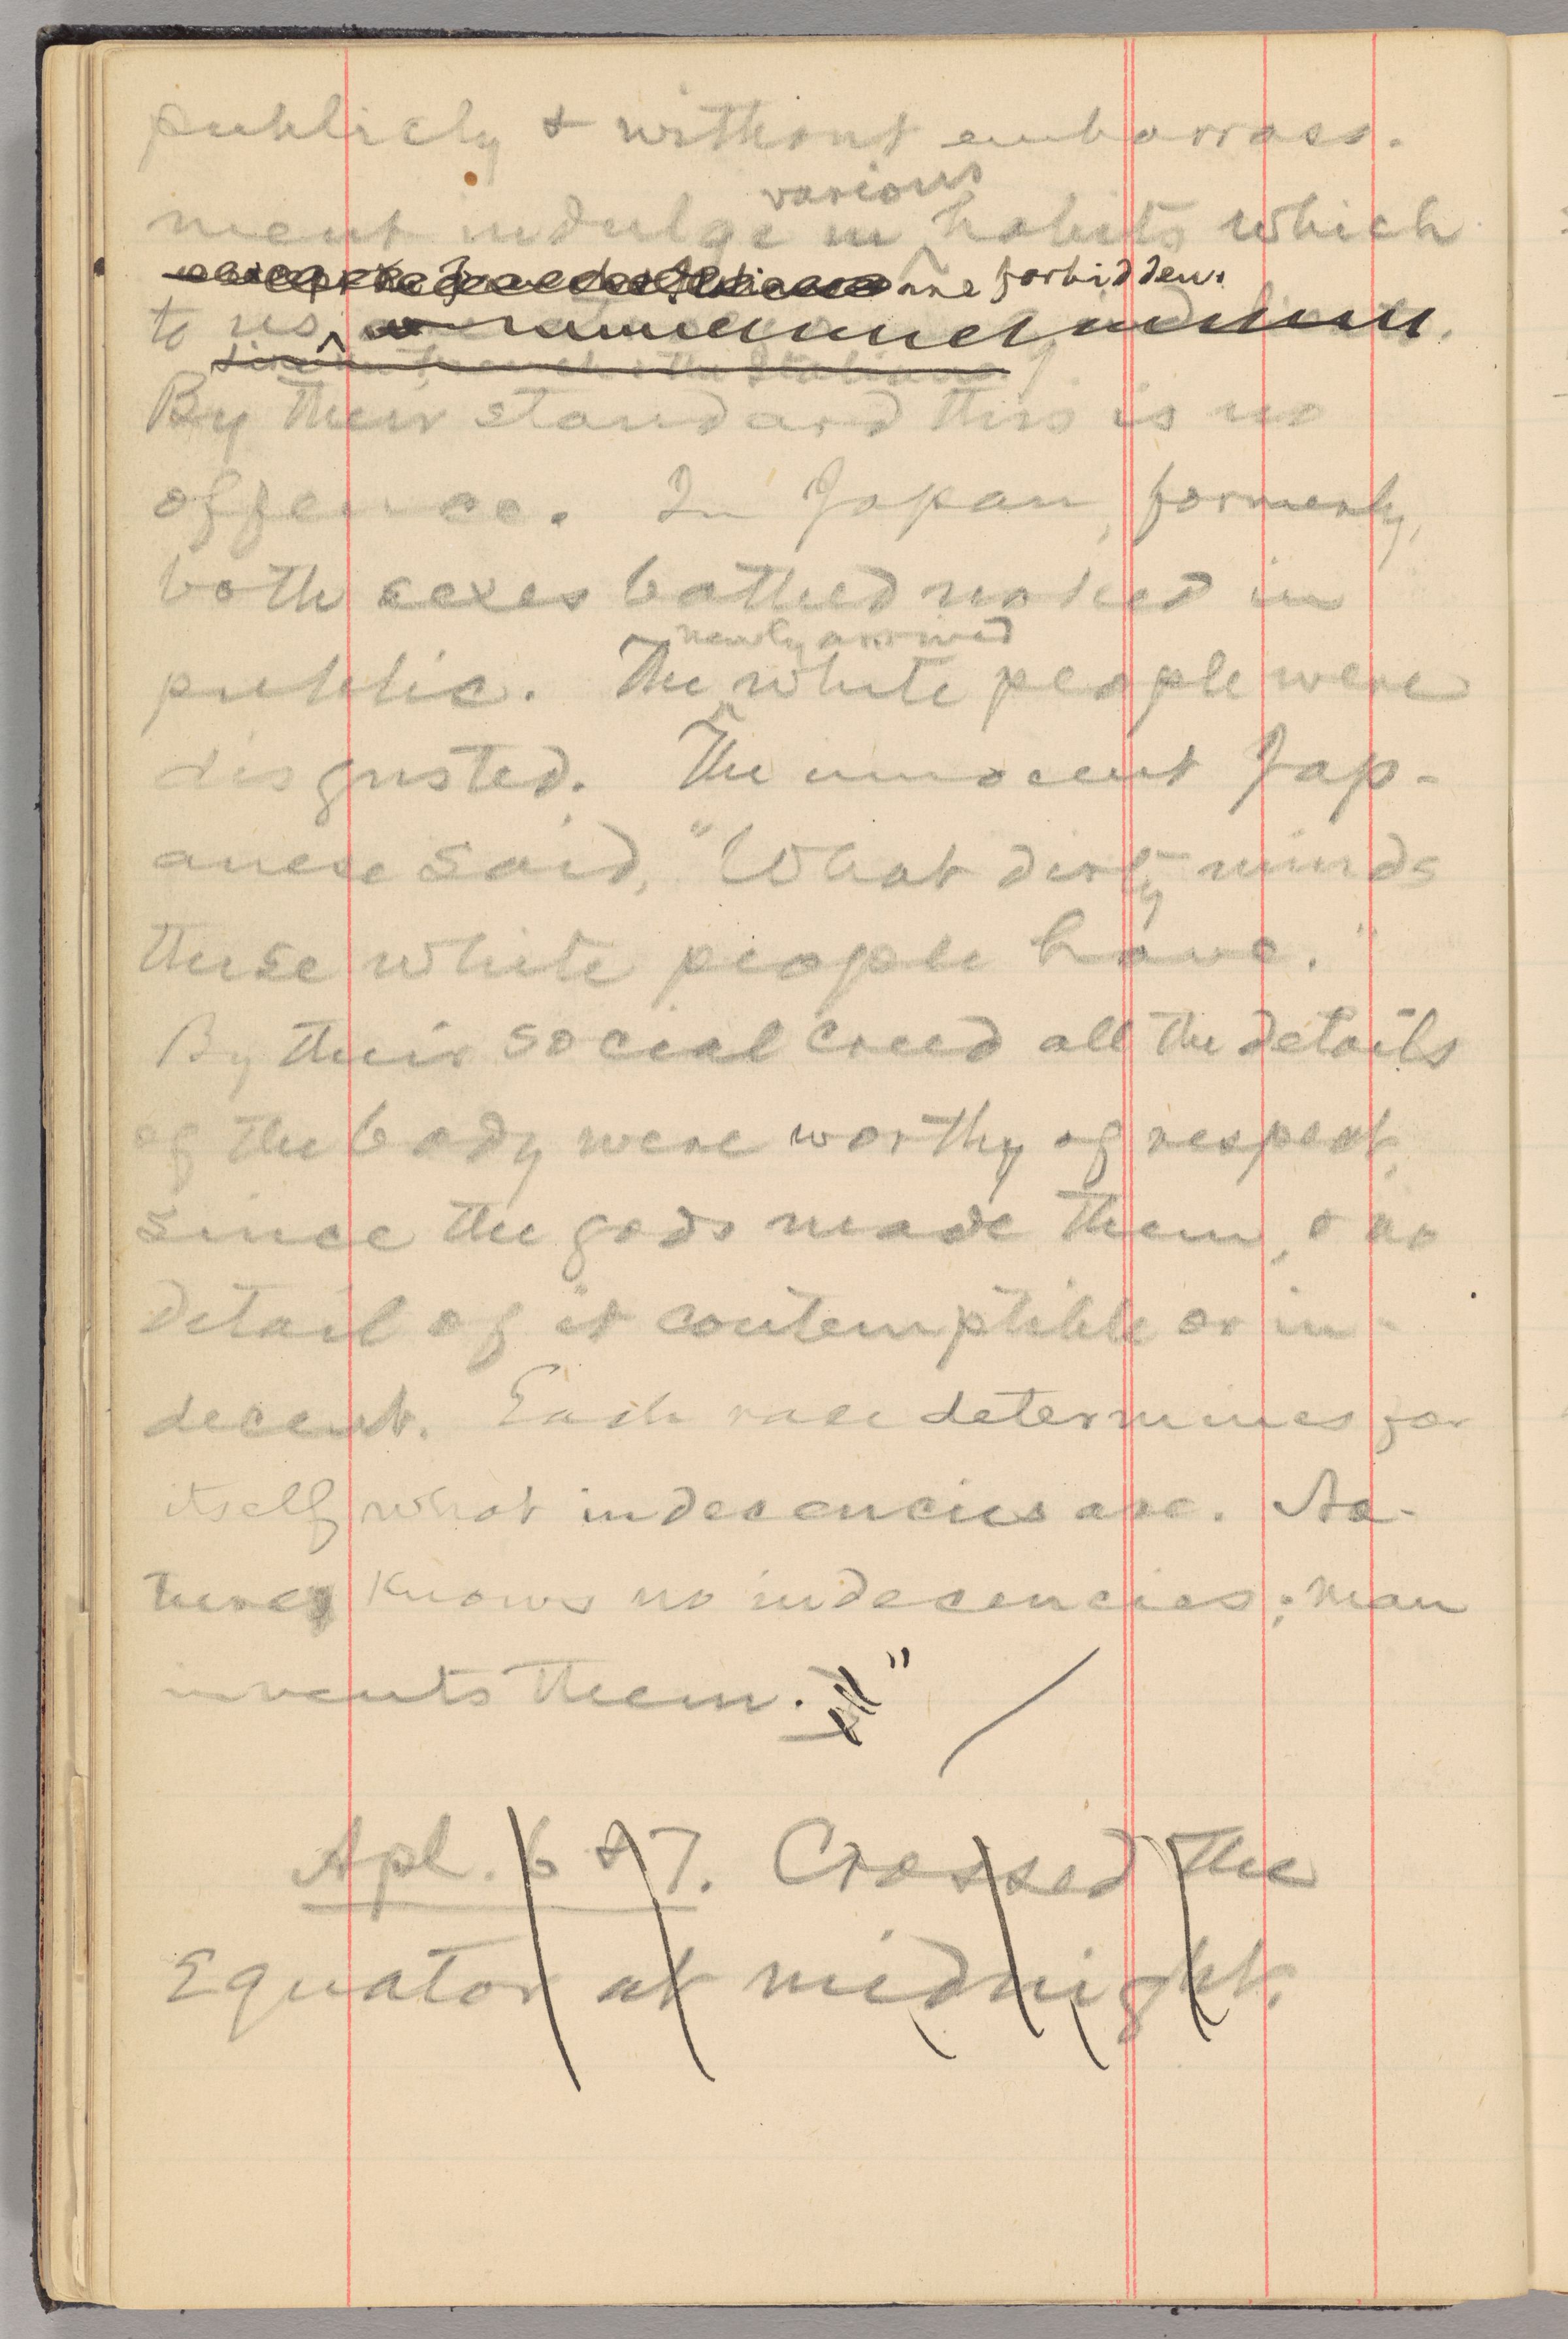 publicly & without embarrass-
various
ment indulge in habits which
are forbidden.
to us
By their standard this is no
offence. In Japan, formerly,
both sexes bathed naked in
newly arrived
public. The white people were
disgusted. The innocent Jap-
anese said, "What dirty minds
these white people have."
By their social creed all the details
of the body were worthy of respect,
since the gods made them, & no
detail of it contemptible or in-
decent. Each race determines for
itself what indecencies are. Na-
ture knows no indecencies; man
invents them."
Apl. 6 & 7. Crossed the
Equator at midnight.